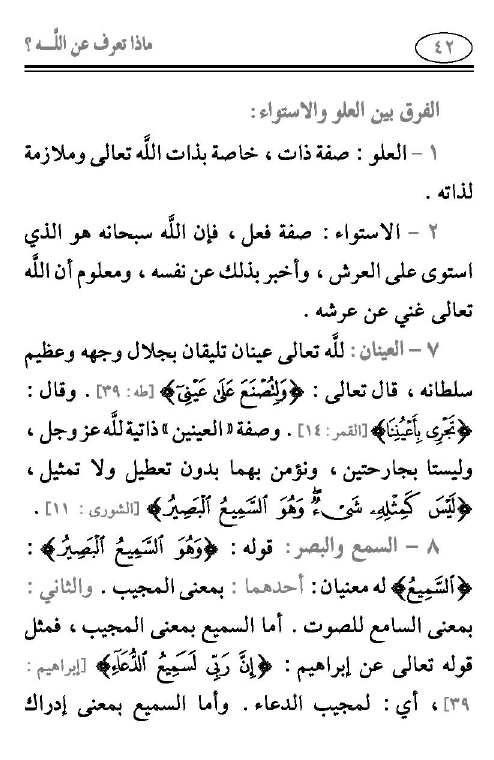 ٤٢
ماذا تعرف عن اللَّـــه ؟
الفرق بين العلو والاستواء :
١ – العلو : صفة ذات ، خاصة بذات اللَّه تعالى وملازمة
لذاته .
٢ – الاستواء : صفة فعل ، فإن اللَّه سبحانه هو الذي
استوى على العرش ، وأخبر بذلك عن نفسه ، ومعلوم أن اللَّه
تعالى غني عن عرشه .
٧ – العينان : للَّه تعالى عينان تليقان بجلال وجهه وعظيم
سلطانه ، قال تعالى : ﴿وَلِتُصْنَعَ عَلَىٰ عَيْنِيٓ﴾ [طه : ٣٩] . وقال :
﴿تَجْرِي بِأَعْيُنِنَا﴾ [القمر : ١٤] . وصفة «العينين» ذاتية للَّه عز وجل ،
وليستا بجارحتين ، ونؤمن بهما بدون تعطيل ولا تمثيل ،
﴿لَيْسَ كَمِثْلِهِۦ شَىْءٌۖ وَهُوَ السَّمِيعُ الْبَصِيرُ﴾ [الشورى : ١١] .
٨ – السمع والبصر : قوله : ﴿وَهُوَ السَّمِيعُ الْبَصِيرُ﴾ :
﴿السَّمِيعُ﴾ له معنيان : أحدهما : بمعنى المجيب . والثاني :
بمعنى السامع للصوت . أما السميع بمعنى المجيب ، فمثل
قوله تعالى عن إبراهيم : ﴿إِنَّ رَبِّي لَسَمِيعُ الدُّعَآءِ﴾ [إبراهيم :
٣٩] ، أي : لمجيب الدعاء . وأما السميع بمعنى إدراك